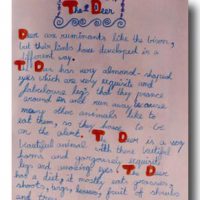 The Deer
Deer are ruminants like the bison,
but their limbs have developed in a
different way.
The Deer has very almond-shaped
eyes which are very exquisite and
fabulous legs that they prance
around on and run away because
many other animals like to
eat them, so they have to be
on the alert. The Deer is a very
beautiful animal with those beautiful
horns and gorgeously exquisite
legs and amazing eyes. The Deer
has a diet; it mostly eats grasses,
shoots, twigs, leaves, fruit of shrubs
and trees